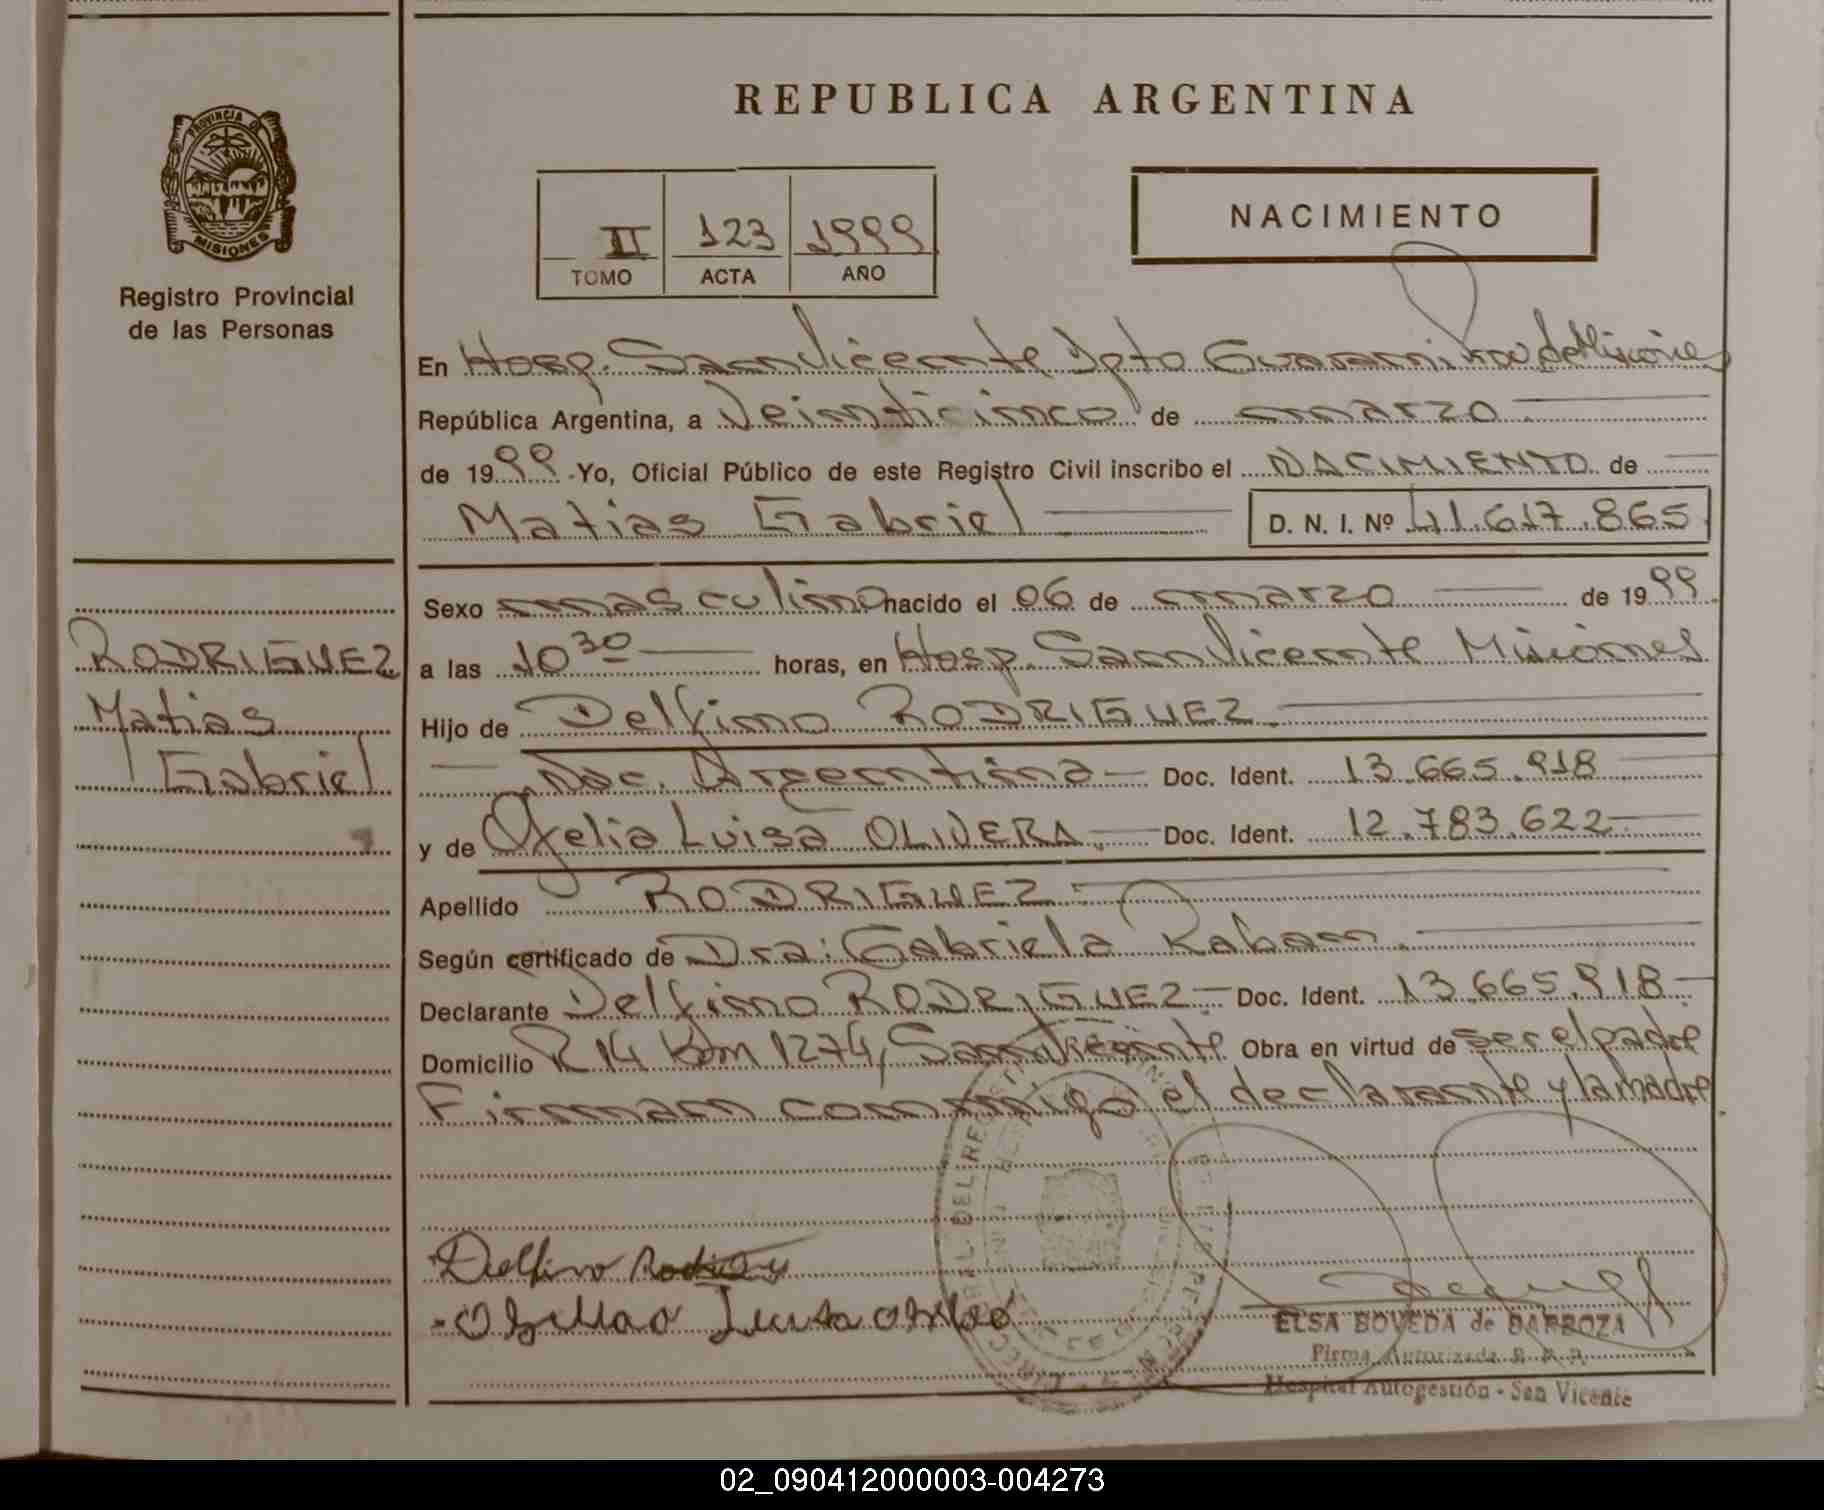 PROVINCIA DE
MISIONES
Registro Provincial
de las Personas
REPUBLICA ARGENTINA
II 123 1999
TOMO ACTA AÑO
NACIMIENTO
En Hosp. San Vicente Dpto Guarani Prov de Misiones
República Argentina, a Veinticinco de marzo
de 1999 Yo, Oficial Público de este Registro Civil inscribo el NACIMIENTO de
Matias Gabriel D. N. I. Nº 41.617.865
Sexo masculino nacido el 06 de marzo de 1999
a las 10 30 horas, en Hosp. San Vicente Misiones
Hijo de Delfino RODRIGUEZ
Nac. Argentina Doc. Ident. 13.665.918
y de Ofelia Luisa OLIVERA Doc. Ident. 12.783.622
Apellido RODRIGUEZ
Según certificado de Dra: Gabriela Kaban.
Declarante Delfino RODRIGUEZ Doc. Ident. 13.665.918
Domicilio R 14 Km 1274, San Vicente Obra en virtud de ser el padre
Firman conmigo el declarante y la madre
RODRIGUEZ
Matias
Gabriel
Delfino
ELSA BOVEDA de BARBOZA
Firma Autorizada R. P. P.
Hospital Autogestión - San Vicente
02_090412000003-004273